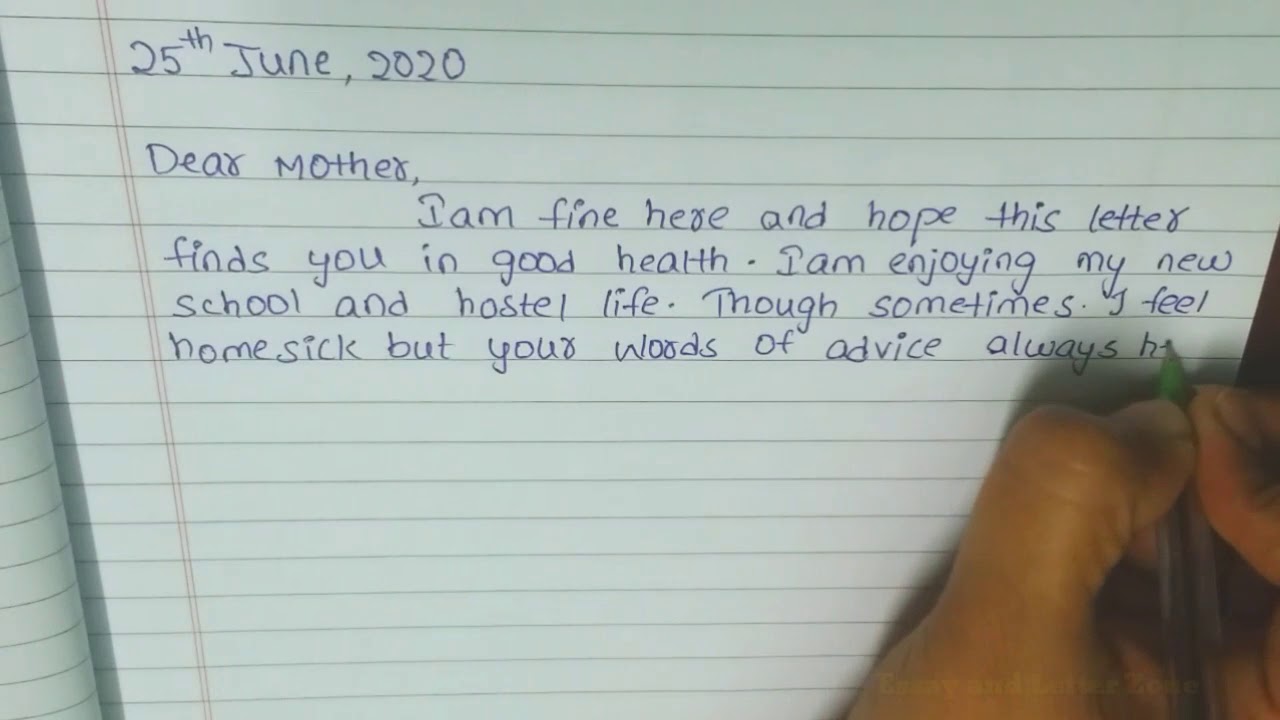 25th June, 2020
Dear Mother,
I am fine here and hope this letter
finds you in good health. I am enjoying my new
school and hostel life. Though sometimes. I feel
homesick but your words of advice always
Essay and Letter Zone